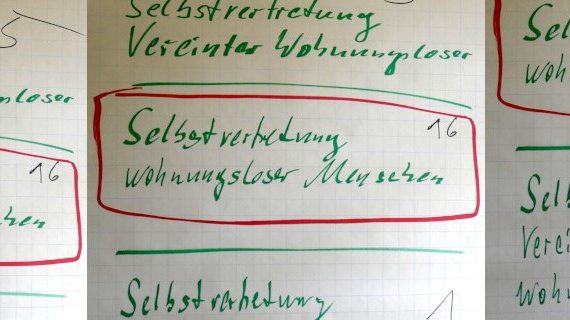 Selbstvertretung
Vereinter Wohnungsloser
Selbstvertretung 16
wohnungsloser Menschen
Selbstvertretung
1
5
nloser
16
chen
Sel
woh
Selb
Verei
wohn